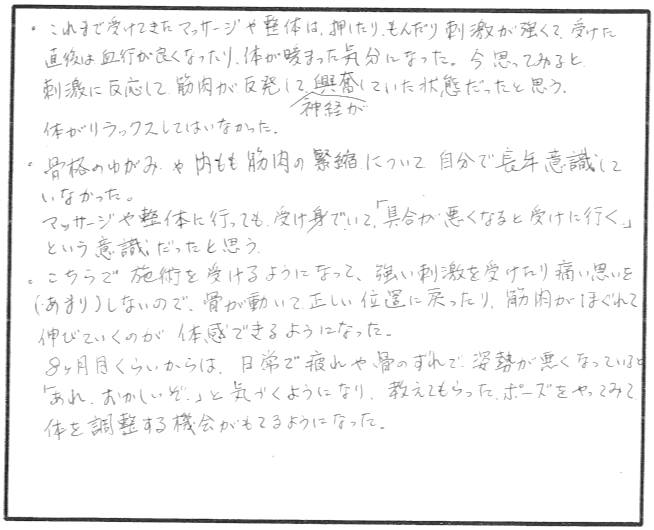 ・これまで受けてきたマッサージや整体は、押したり、もんだり刺激が強くて、受けた
直後は血行が良くなったり、体が暖まった気分になった。今思ってみると
刺激に反応して、筋肉が反発して、興奮していた状態だったと思う。
神経が
体がリラックスしてはいなかった。
・骨格のゆがみや内もも筋肉の緊縮について自分で長年意識して
いなかった。
マッサージや整体に行っても、受け身でいて、「具合が悪くなると受けに行く。」
という意識だったと思う。
・こちらで施術を受けるようになって、強い刺激を受けたり痛い思いを
(あまり)しないので、骨が動いて正しい位置に戻ったり、筋肉がほぐれて
伸びていくのが体感できるようになった。
8ヶ月目くらいからは、日常で疲れや骨のずれで、姿勢が悪くなっていると
「あれ、おかしいぞ。」と気づくようになり、教えてもらったポーズをやってみて
体を調整する機会がもてるようになった。